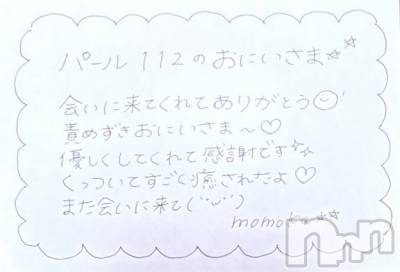 パール112のおにいさま☆☆
会いに来てくれてありがとう☺
責めずきおにいさま〜♡
優しくしてくれて感謝です☆
くっついてすごく癒されたよ♡
また会いに来て(˘ᵕ˘)